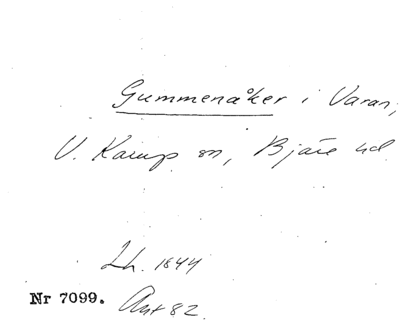 Gummenåker i Varan,
V. Karup sn, Bjäre hd
Lh. 1844
Nr 7099. Akt 82.